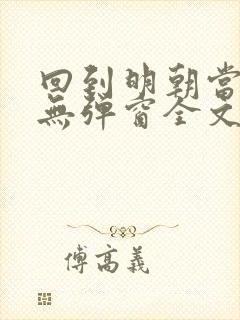 回到明朝當
無彈窗全文
傅高義